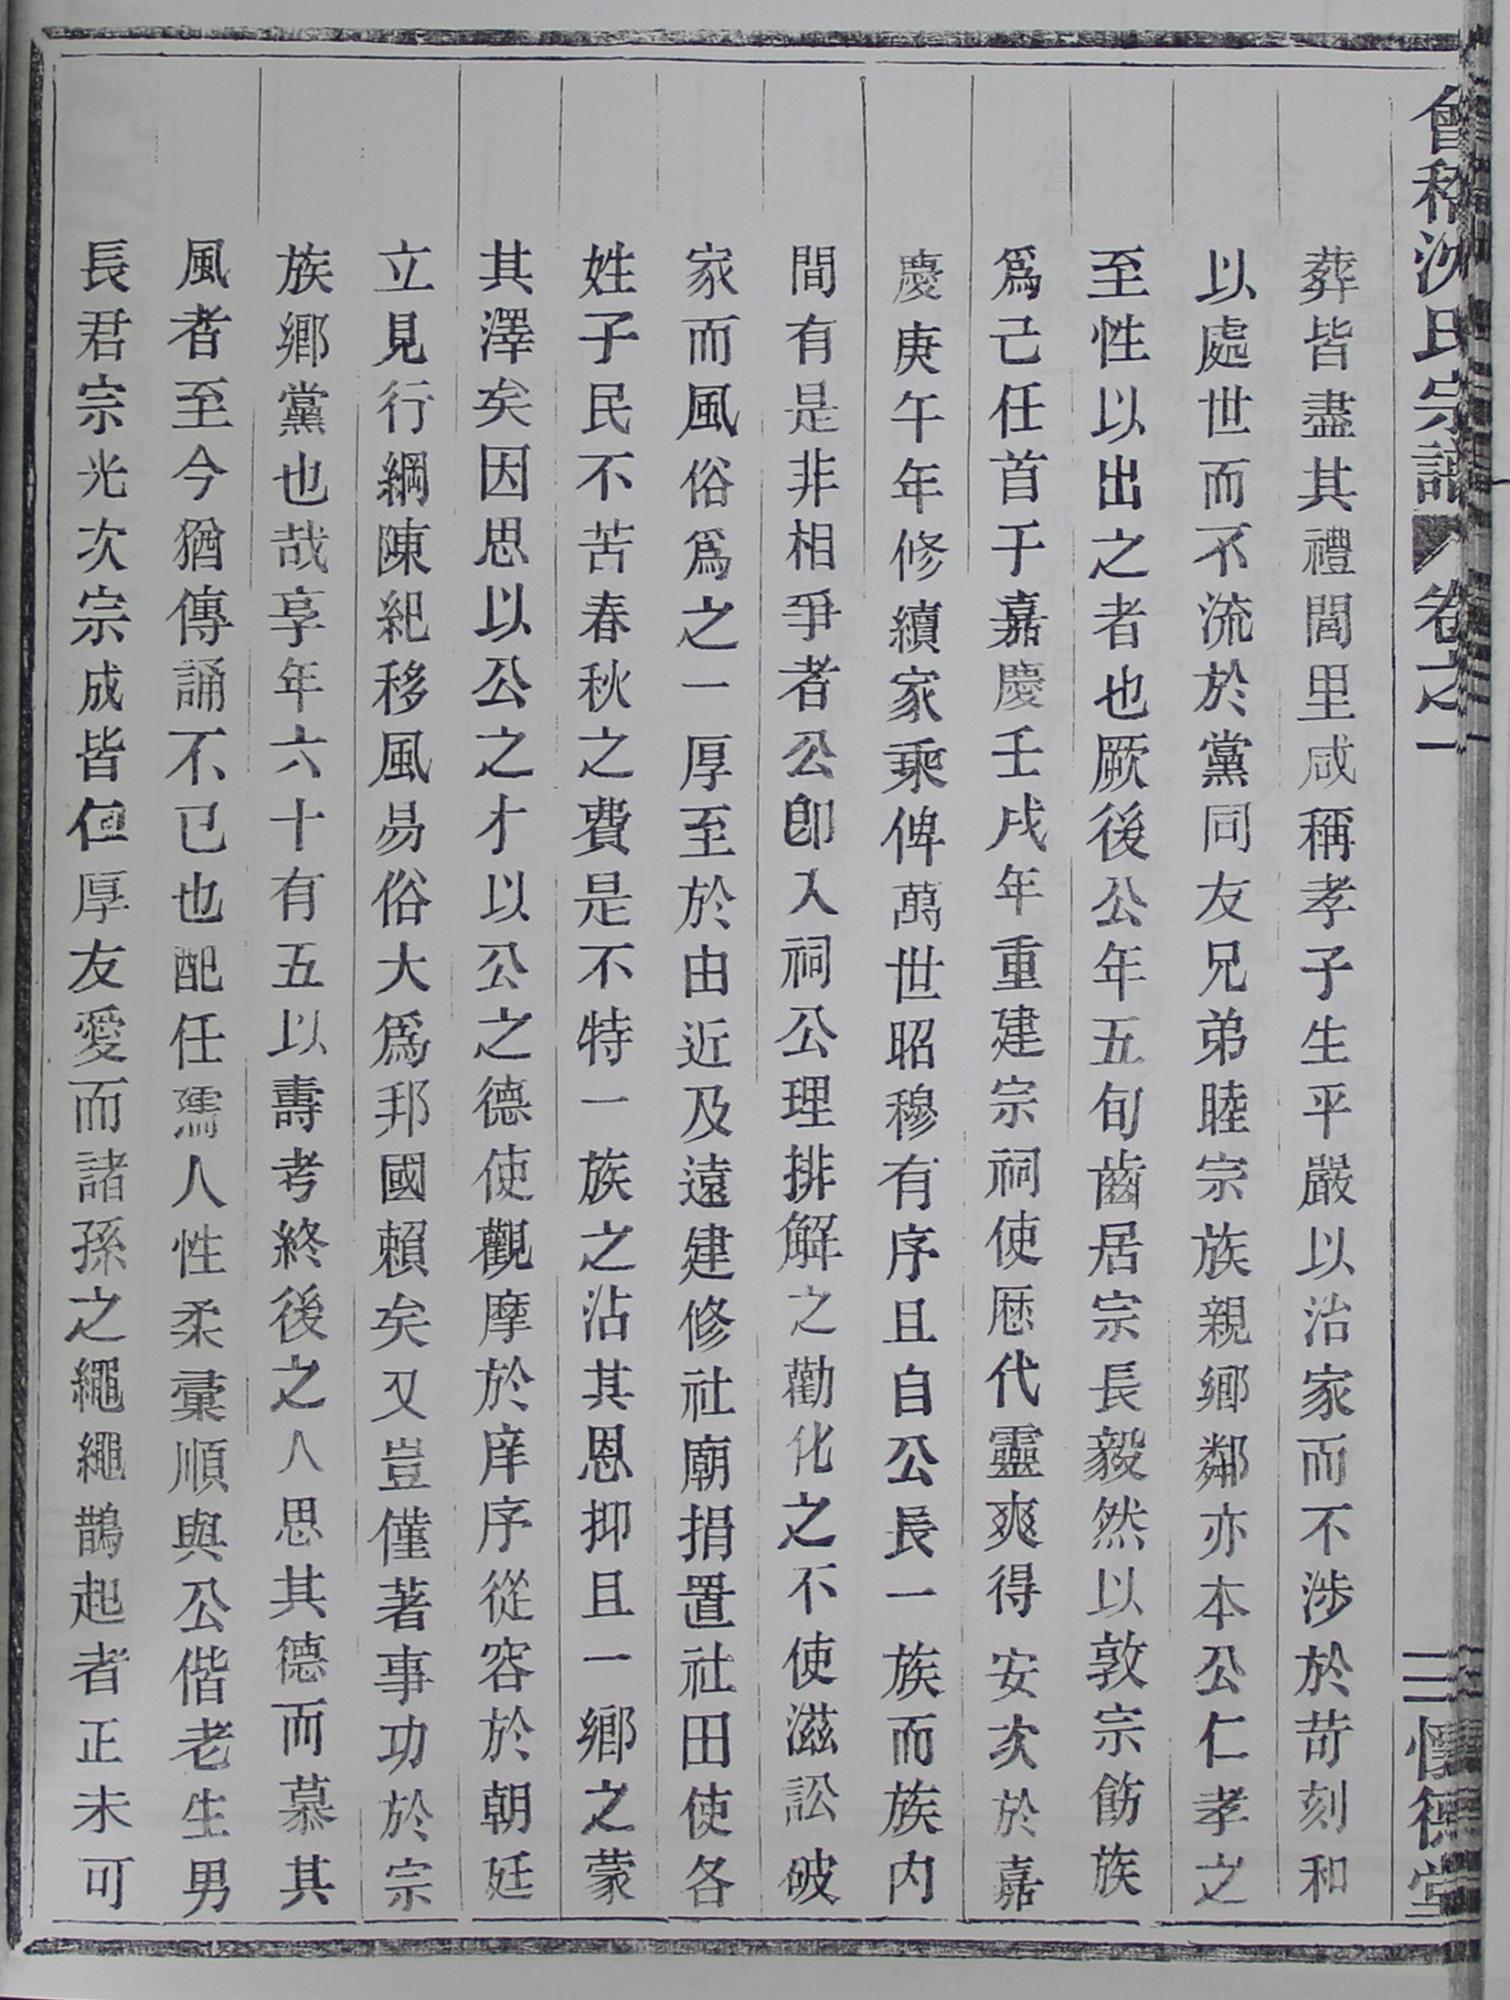 會稽沈氏宗譜 卷之一 三 懷德堂
葬皆盡其禮閭里咸稱孝子生平嚴以治家而不涉於苛刻和
以處世而不流於黨同友兄弟睦宗族親鄉鄰亦本公仁孝之
至性以出之者也厥後公年五旬齒居宗長毅然以敦宗飭族
爲己任首于嘉慶壬戌年重建宗祠使歷代靈爽得安次於嘉
慶庚午年修續家乘俾萬世昭穆有序且自公長一族而族内
間有是非相爭者公卽入祠公理排解之勸化之不使滋訟破
家而風俗爲之一厚至於由近及遠建修社廟捐置社田使各
姓子民不苦春秋之費是不特一族之沾其恩抑且一鄉之蒙
其澤矣因思以公之才以公之德使觀摩於庠序從容於朝廷
立見行綱陳紀移風易俗大爲邦國賴矣又豈僅著事功於宗
族鄉黨也哉享年六十有五以壽考終後之人思其德而慕其
風者至今猶傳誦不已也配任孺人性柔彙順與公偕老生男
長君宗光次宗成皆仁厚友愛而諸孫之繩繩鵲起者正未可